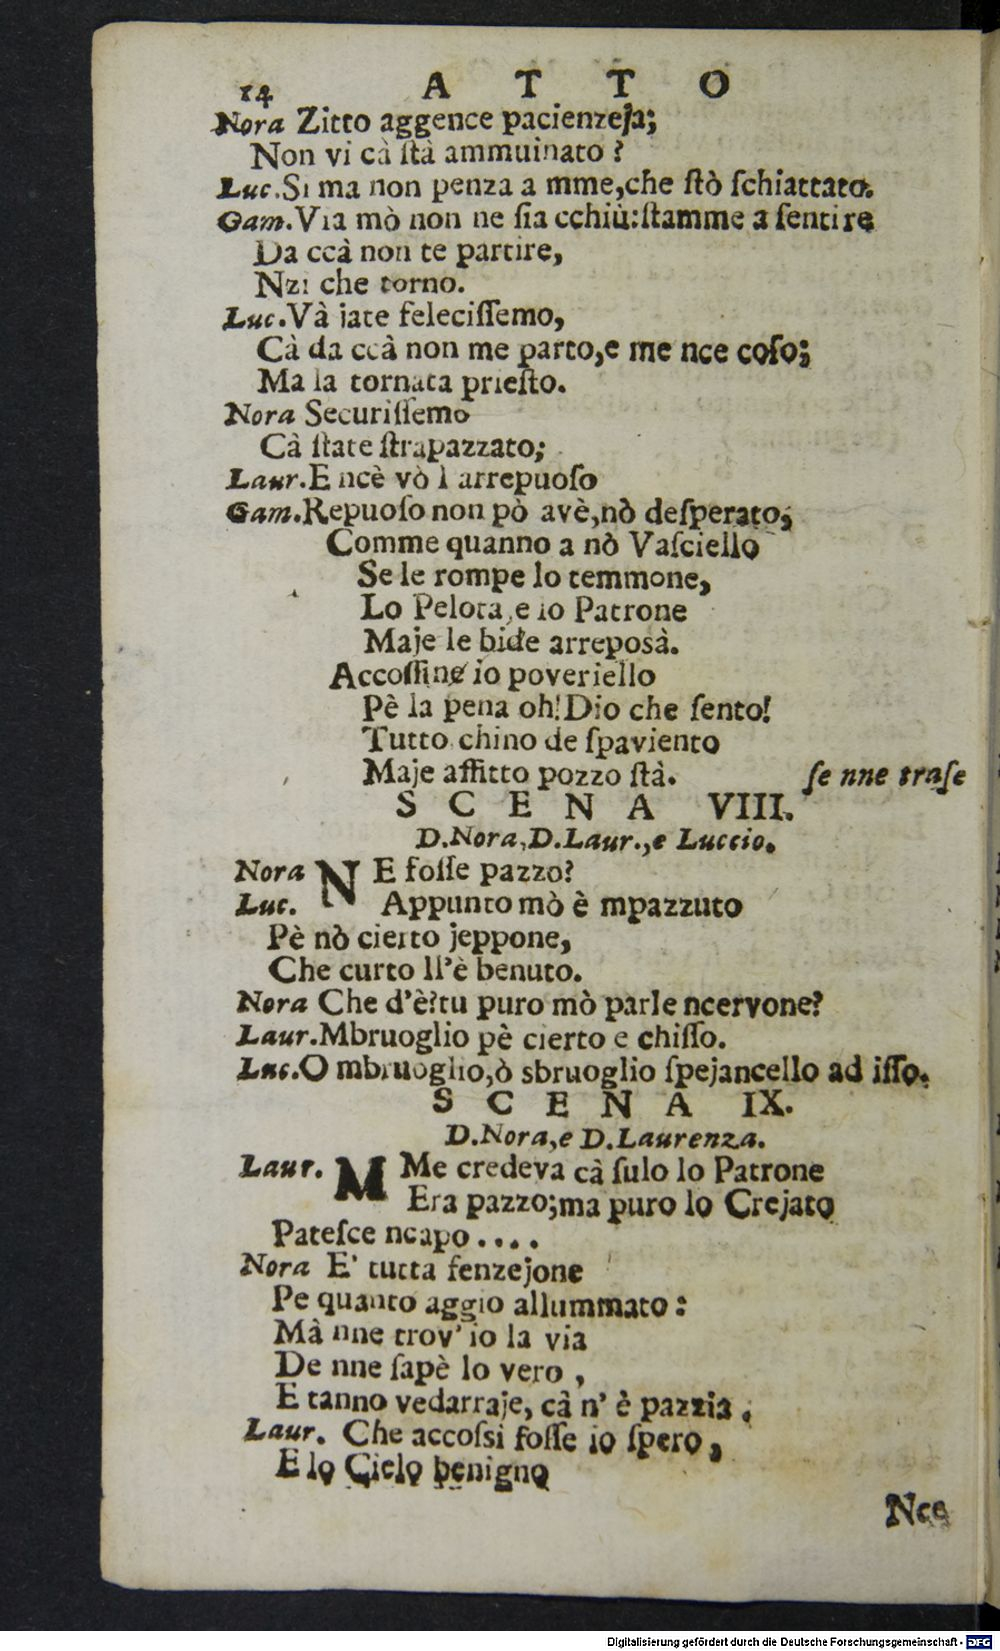 14 ATTO
Nora Zitto aggence pacienzeja;
Non vi cà ſtà ammuinato?
Luc. Si ma non penza a mme, che ſtò ſchiattato.
Gam. Via mò non ne ſia cchiù: ſtamme a ſentire
Da ccà non te partire,
Nzi che torno.
Luc. Và jate feleciſſemo,
Cà da ccà non me parto, e me nce coſo;
Ma la tornata prieſto.
Nora Securiſſemo
Cà ſtate ſtrapazzato;
Laur. E ncè vò l arrepuoſo
Gam. Repuoſo non pò avè, nò deſperato,
Comme quanno a nò Vaſciello
Se le rompe lo temmone,
Lo Pelota, e lo Patrone
Maje le bide arreposà.
Accoſſine io poveriello
Pè la pena oh! Dio che ſento!
Tutto chino de ſpaviento
Maje affitto pozzo ſtà. ſe nne traſe
SCENA VIII.
D. Nora, D. Laur., e Luccio.
Nora NE foſſe pazzo?
Luc. Appunto mò è mpazzuto
Pè nò cierto jeppone,
Che curto ll'è benuto.
Nora Che d'è? tu puro mò parle ncervone?
Laur. Mbruoglio pè cierto e chiſſo.
Luc. O mbruoglio, ò sbruoglio ſpejancello ad iſſo.
SCENA IX.
D. Nora, e D. Laurenza.
Laur. MMe credeva cà ſulo lo Patrone
Era pazzo; ma puro lo Crejato
Pateſce ncapo....
Nora E' tutta fenzejone
Pe quanto aggio allummato:
Mà nne trov' io la via
De nne ſapè lo vero,
E tanno vedarraje, cà n' è pazzia.
Laur. Che accoſsi foſſe io ſpero,
E lo Cielo benigno
Nce
Digitalisierung gefördert durch die Deutsche Forschungsgemeinschaft - DFG